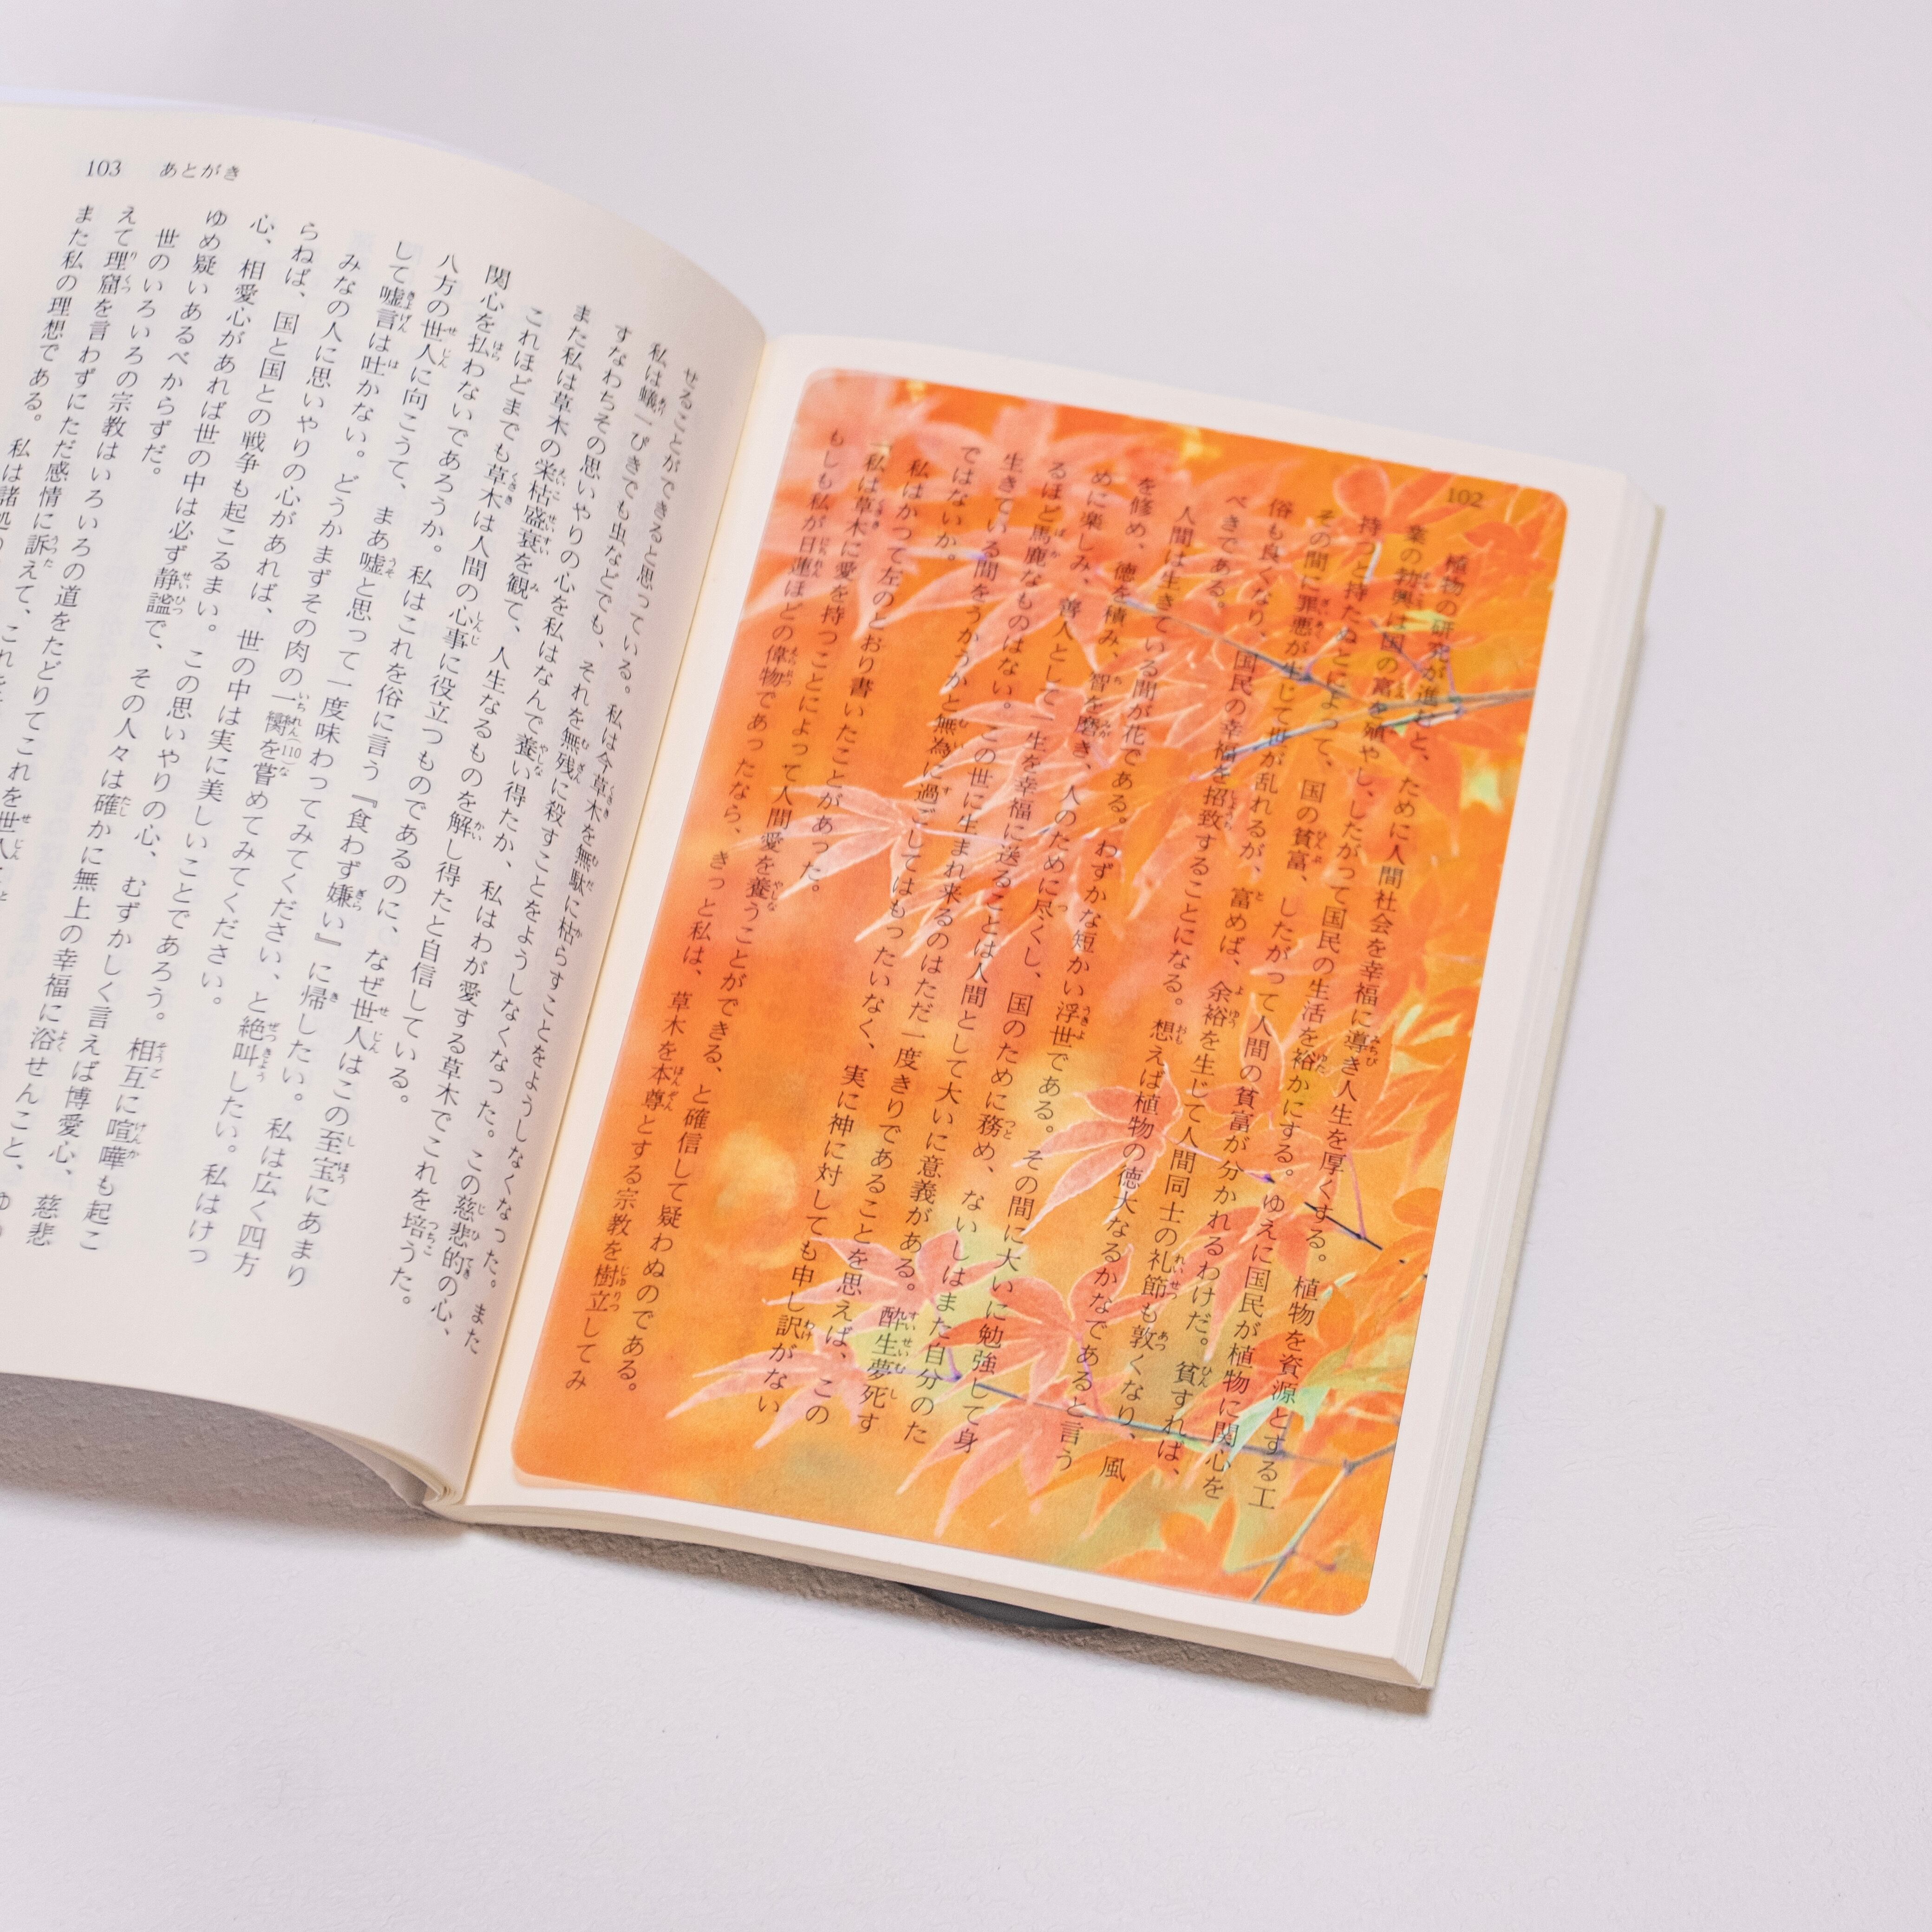 102
植物の研究が進むと、ために人間社会を幸福に導き人生を厚くする。植物を資源とする工
業の勃興は国の富を殖やし、したがって国民の生活を裕かにする。ゆえに国民が植物に関心を
持つと持たぬとによって、国の貧富、したがって人間の貧富が分かれるわけだ。貧すれば、
その間に罪悪が生じて世が乱れるが、富めば、余裕を生じて人間同士の礼節も敦くなり、風
俗も良くなり、国民の幸福を招致することになる。想えば植物の徳大なるかなであると言う
べきである。
人間は生きている間が花である。わずかな短かい浮世である。その間に大いに勉強して身
を修め、徳を積み、智を磨き、人のために尽くし、国のために務め、ないしはまた自分のた
めに楽しみ、善人として一生を幸福に送ることは人間として大いに意義がある。酔生夢死す
るほど馬鹿なものはない。この世に生まれ来るのはただ一度きりであることを思えば、この
生きている間をうかうかと無為に過ごしてはもったいなく、実に神に対しても申し訳がない
ではないか。
私はかつて左のとおり書いたことがあった。
私は草木に愛を持つことによって人間愛を養うことができる、と確信して疑わぬのである。
もしも私が日蓮ほどの偉物であったなら、きっと私は、草木を本尊とする宗教を樹立してみ
103 あとがき
せることができると思っている。私は今草木を無駄に枯らすことをようしなくなった。また
私は蟻一ぴきでも虫などでも、それを無残に殺すことをようしなくなった。この慈悲的の心、
すなわちその思いやりの心を私はなんで養い得たか、私はわが愛する草木でこれを培うた。
また私は草木の栄枯盛衰を観て、人生なるものを解し得たと自信している。
これほどまでも草木は人間の心事に役立つものであるのに、なぜ世人はこの至宝にあまり
関心を払わないであろうか。私はこれを俗に言う『食わず嫌い』に帰したい。私は広く四方
八方の世人に向こうて、まあ嘘と思って一度味わってみてください、と絶叫したい。私はけっ
して嘘言は吐かない。どうかまずその肉の一臠(110)を嘗めてみてください。
みなの人に思いやりの心があれば、世の中は実に美しいことであろう。相互に喧嘩も起こ
らねば、国と国との戦争も起こるまい。この思いやりの心、むずかしく言えば博愛心、慈悲
心、相愛心があれば世の中は必ず静謐で、その人々は確かに無上の幸福に浴せんこと、ゆ
ゆめ疑いあるべからずだ。
世のいろいろの宗教はいろいろの道をたどりてこれを世人に
えて理窟を言わずにただ感情に訴えて、これを
また私の理想である。私は諸処